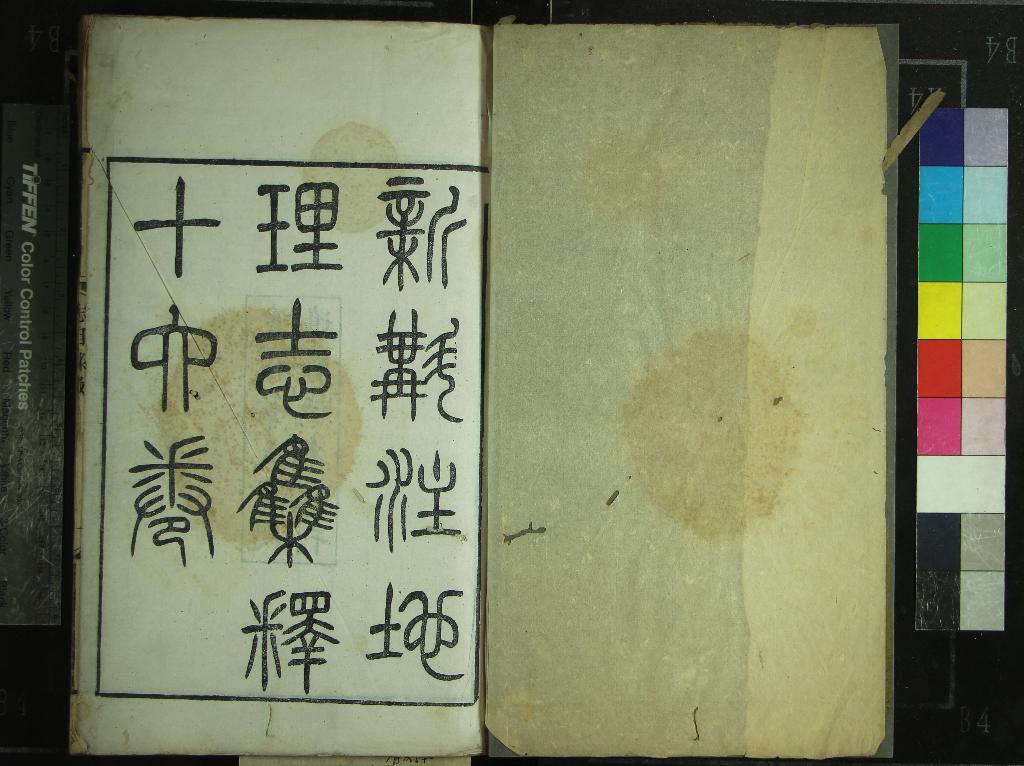 新斠注地
理志雧釋
十六卷
TIFFEN Color Control Patches
Blue Cyan Green Yellow Red Magenta
B4
B4
B4